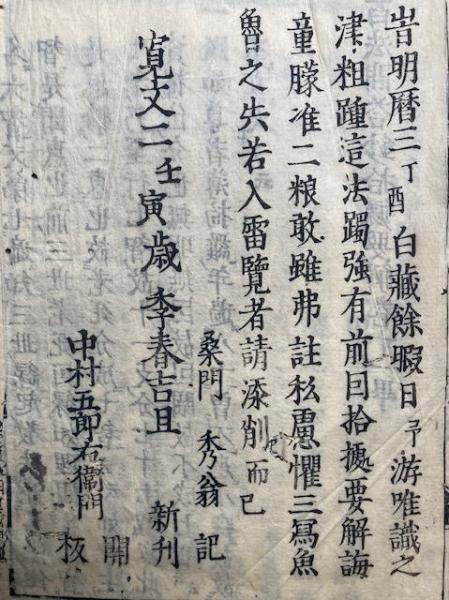 旹明曆三丁酉白藏餘暇日予游唯識之
津粗踵這法躅強有前曰拾摭要解誨
童朦准二粮敢雖弗註私慮懼三寫魚
魯之失若入雷覽者請添削而已
桑門 秀翁 記
寛文二壬寅歳季春吉旦 新刊
中村五郎右衛門 開板